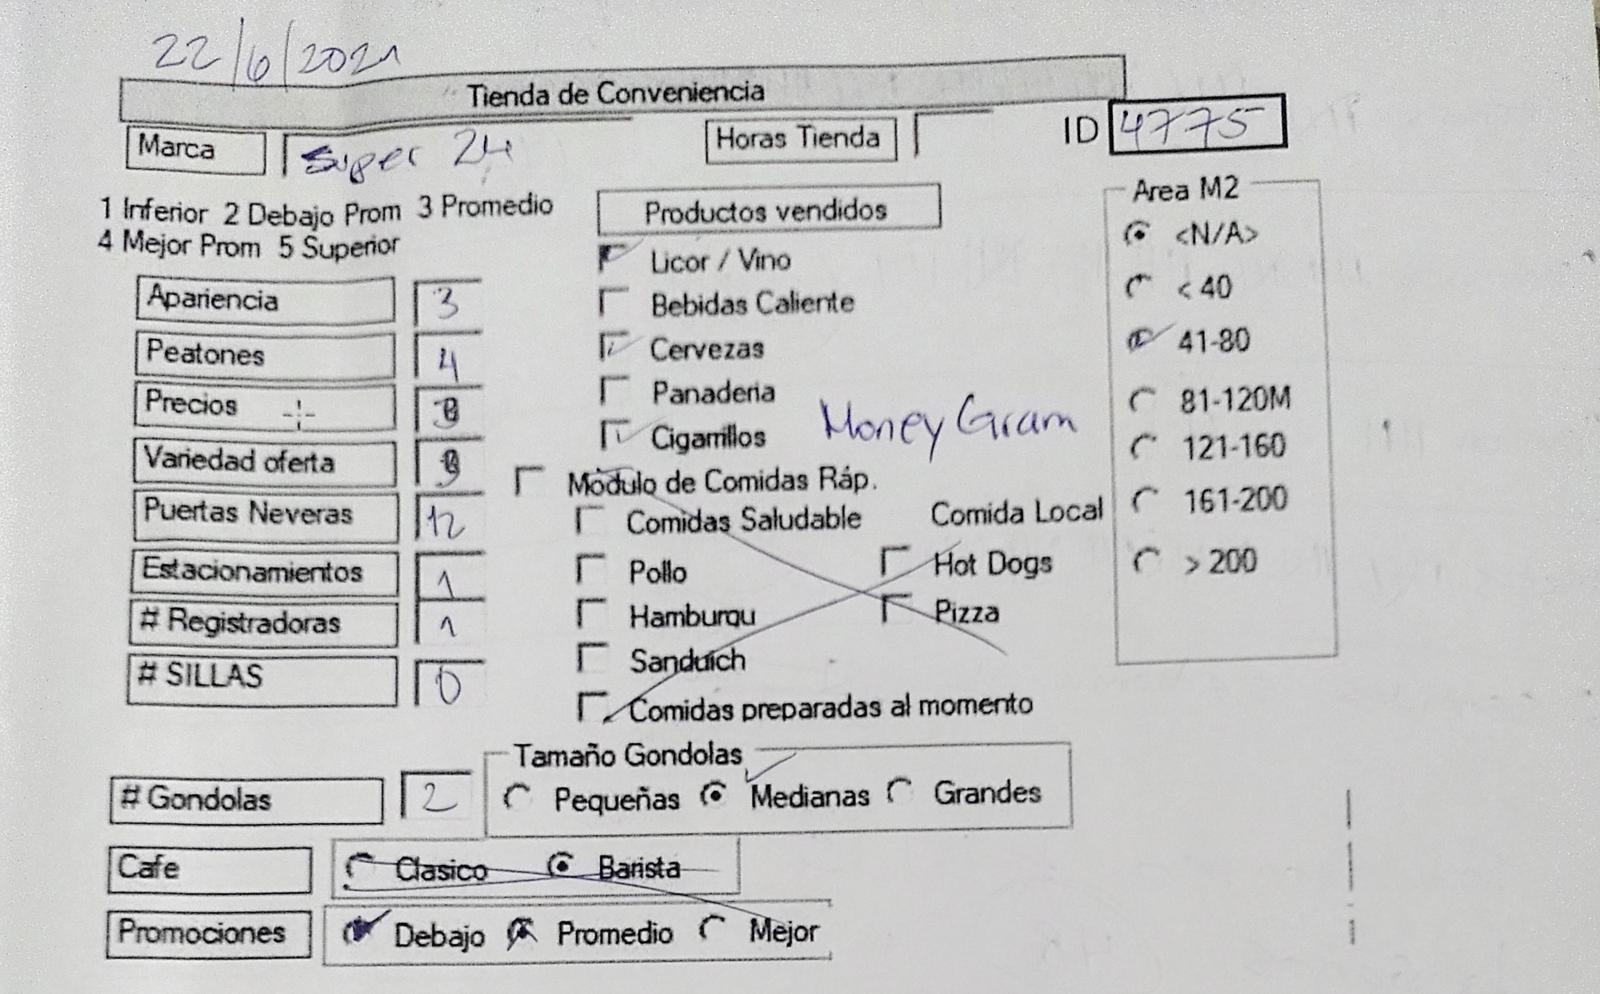 22/6/2021
Tienda de Conveniencia
Marca Super 24 Horas Tienda ID 4775
1 Inferior 2 Debajo Prom 3 Promedio
4 Mejor Prom 5 Superior
Productos vendidos
Licor / Vino
Bebidas Caliente
Cervezas
Panaderia
Cigarrillos
Money Gram
Area M2
<N/A>
< 40
41-80
81-120M
121-160
161-200
> 200
Apariencia 3
Peatones 4
Precios
Variedad oferta
Puertas Neveras 12
Estacionamientos 1
# Registradoras 1
# SILLAS 0
Módulo de Comidas Ráp.
Comidas Saludable Comida Local
Pollo Hot Dogs
Hamburqu Pizza
Sanduich
Comidas preparadas al momento
Tamaño Gondolas
# Gondolas 2 Pequeñas Medianas Grandes
Cafe Clasico Barista
Promociones Debajo Promedio Mejor